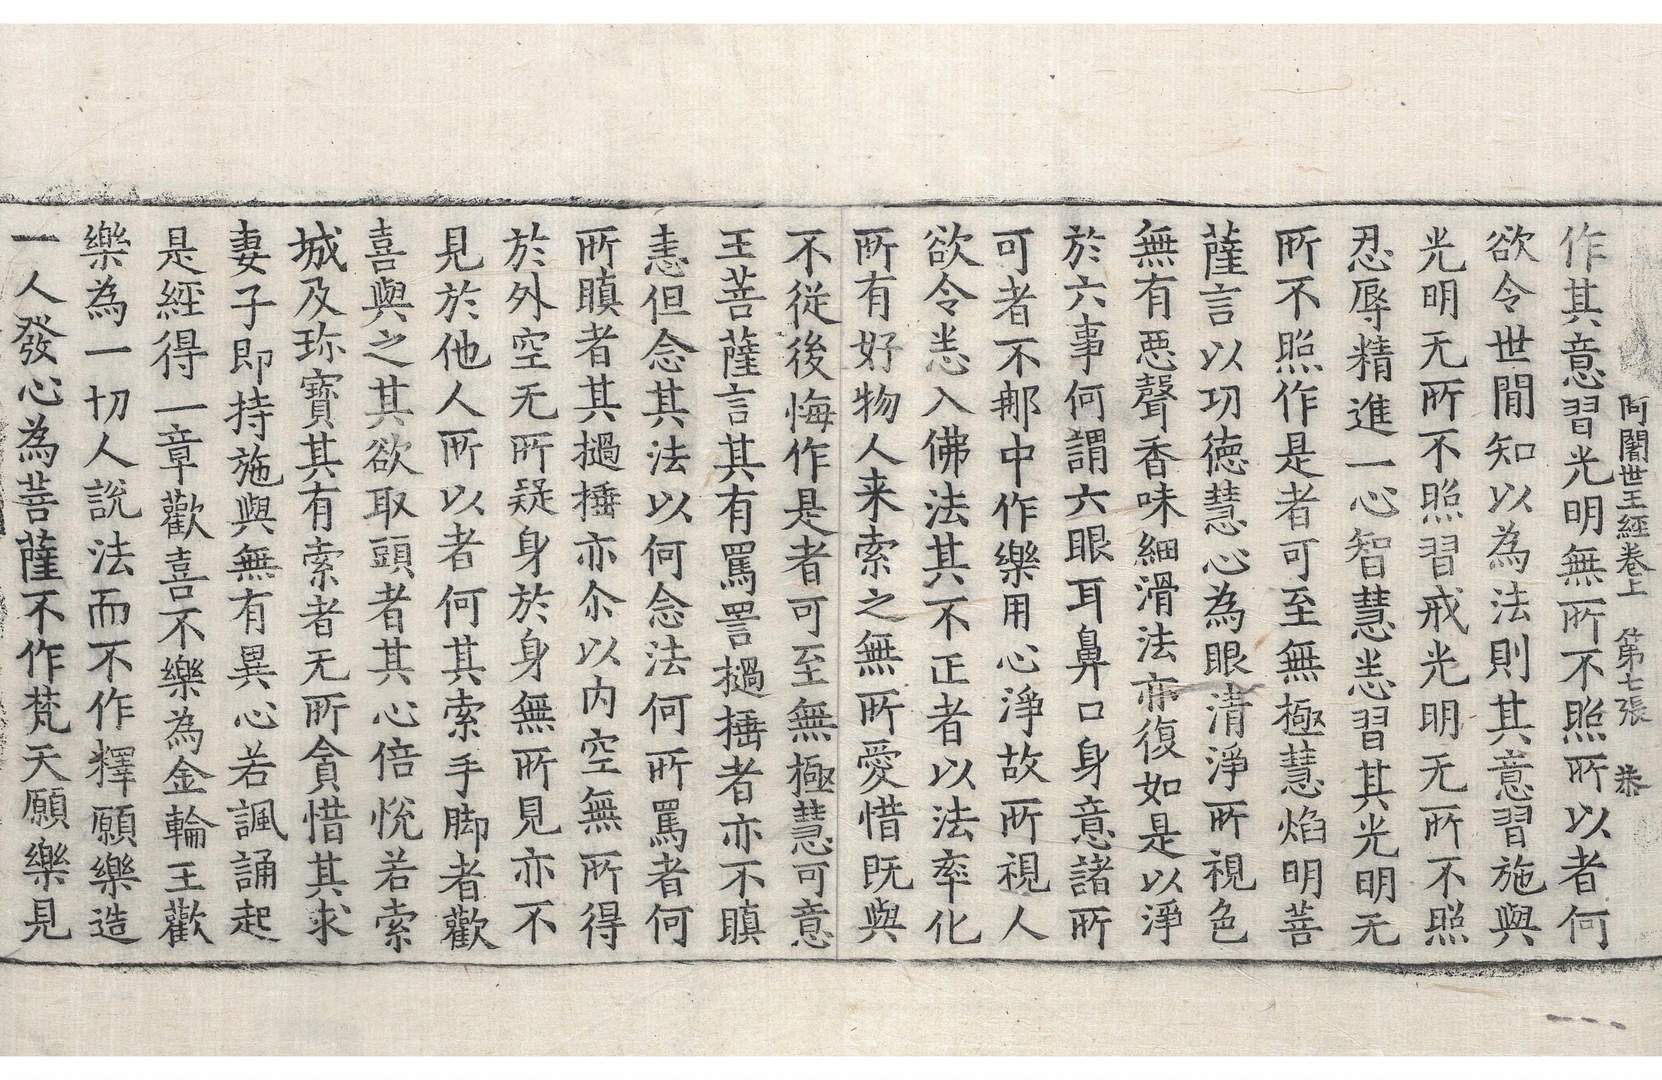 阿闍世王經卷上　第七張　恭
作其意習光明無所不照所以者何
欲令世間知以為法則其意習施與
光明无所不照習戒光明无所不照
忍辱精進一心智慧悉習其光明无
所不照作是者可至無極慧焰明菩
薩言以功德慧心為眼清淨所視色
無有惡聲香味細滑法亦復如是以淨
於六事何謂六眼耳鼻口身意諸所
可者不那中作樂用心淨故所視人
欲令悉入佛法其不正者以法率化
所有好物人来索之無所愛惜既與
不從後悔作是者可至無極慧可意
王菩薩言其有罵詈撾捶者亦不瞋
恚但念其法以何念法何所罵者何
所瞋者其撾捶亦尒以内空無所得
於外空无所疑身於身無所見亦不
見於他人所以者何其索手脚者歡
喜與之其欲取頭者其心倍悅若索
城及珎寶其有索者无所貪惜其求
妻子即持施與無有異心若諷誦起
是經得一章歡喜不樂為金輪王歡
樂為一切人說法而不作釋願樂造
一人發心為菩薩不作梵天願樂見